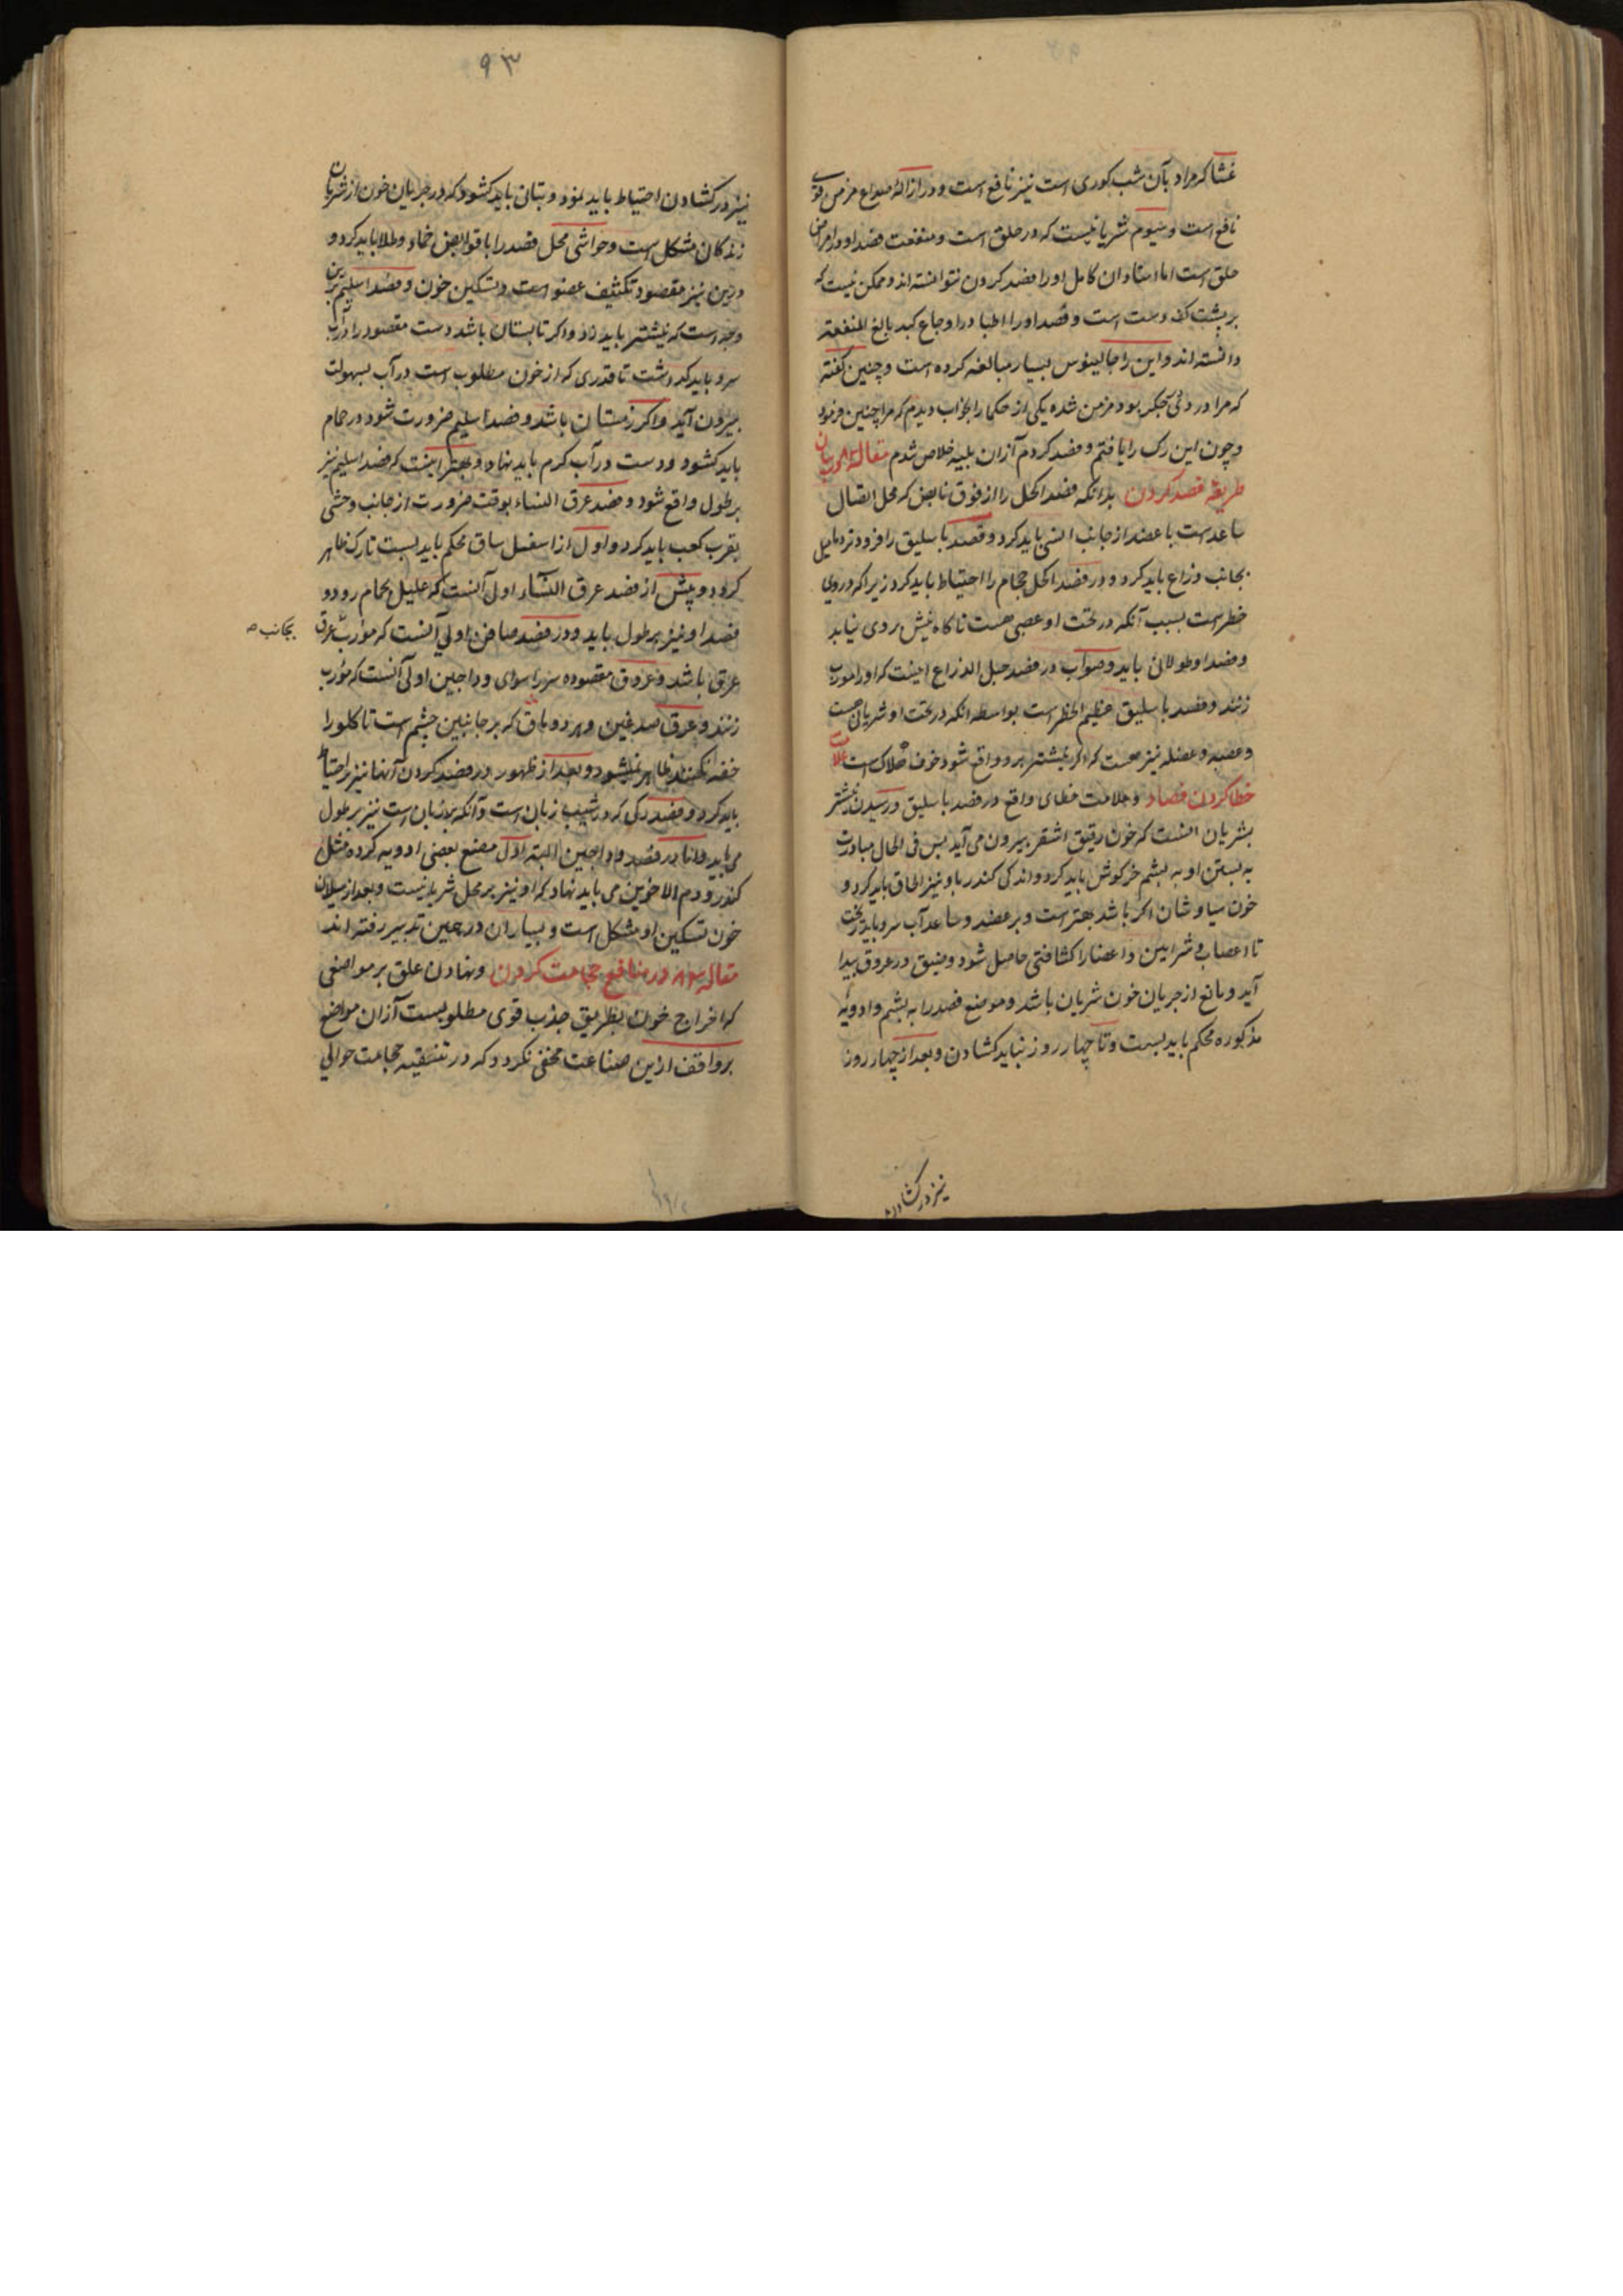 غشا که مراد بآن شب کوری است نیز نافع است و در ازاله صداع مزمن قوی
نافع است و سیوم شریانیست که در حلق است و منفعت فصد او در امراض
حلق است اما استادان کامل او را فصد کردن نتوانسته اند و ممکن نیست که
بر پشت کف دست است و فصد او را اطبا در اوجاع کبد بالغ المنفعة
دانسته اند و این را جالینوس بسیار مبالغه کرده است و چنین گفته
که مرا درد جگر بود مزمن شده یکی از حکما را بخواب دیدم که مرا چنین فرمود
و چون این رک را یافتم و فصد کردم از آن بلیه خلاص شدم مقاله در بیان
طریقه فصد کردن بدانکه فصد اکحل را از فوق نابض که محل اتصال
ساعد است با عضد از جانب انسی باید کرد و فصد باسلیق را فرودتر مایل
بجانب ذراع باید کرد و در فصد اکحل حجام را احتیاط باید کرد زیرا که در وی
خطر است بسبب آنکه در تحت او عصبی هست ناگاه نیش بر وی نیاید
و فصد او طولانی باید و صواب در فصد حبل الذراع اینست که او را مورب
زنند و فصد باسلیق عظیم الخطر است بواسطه آنکه در تحت او شریان هست
و عصبه و عضله نیز هست که اگر نیشتر برو واقع شود خوف هلاک است علامت
خطا کردن فصاد و علامت خطای واقع در فصد باسلیق و رسیدن نیشتر
بشریان انست که خون رقیق اشقر بیرون می آید پس فی الحال مبادرت
به بستن او به پشم خرکوش باید کرد و اندکی کندر باو نیز الحاق باید کرد و
خون سیاوشان اگر باشد بهتر است و بر عضد و ساعد آب سرد باید ریخت
تا اعصاب و شرایین و اعضا را کثافتی حاصل شود و ضیق در عروق پیدا
آید و مانع از جریان خون شریان باشد و موضع فصد را به پشم و ادویه
مذکوره محکم باید بست و تا چهار روز نباید کشادن و بعد از چهار روز
نیز در کشادن
۹۳
نیز در کشادن احتیاط باید نمود و بتانی باید کشود که در جریان خون از شریان
زندکان مشکل است و حواشی محل فصد را با قوابض ضماد و طلا باید کرد و
درین نیز مقصود تکثیف عضو است و تسکین خون و فصد اسیلم برین
وجه است که نیشتر باید زد و اگر تابستان باشد دست مقصود را در آب
سرد باید گذاشت تا قدری که از خون مطلوب است در آب بسهولت
بیرون آید و اکر زمستان باشد و فصد اسیلم ضرورت شود در حمام
باید کشود و دست در آب کرم باید نهاد و بهتر اینست که فصد اسیلم نیز
بر طول واقع شود و فصد عرق النساء بوقت ضرورت از جانب وحشی
بقرب کعب باید کرد و اول از اسفل ساق محکم باید بست تا رک ظاهر
کردد و پیش از فصد عرق النساء اولی آنست که علیل بحمام رود و
فصد او نیز بر طول باید و در فصد صافن اولی آنست که مورب عرق
بجانب
عرق باشد و عروق مقصوده سر را سوای وداجین اولی آنست که مورب
زنند و عرق صدغین و هر دو ماق که بر جانبین چشم است تا کلو را
خفه نکنند ظاهر نمیشود و بعد از ظهور در فصد کردن آنها نیز احتیاط
باید کرد و فصد رکی که در شیب زبان است و آنکه بر زبان است نیز بر طول
می باید و اما در فصد وداجین البته اول مصنع بعضی ادویه کرده مثل
کندر و دم الاخوین می باید نهاد که او نیز بر محل شریانست و بعد از سیلان
خون تسکین او مشکل است و بسیاران در همین تدبیر رفته اند
مقاله در منافع حجامت کردن و نهادن علق بر مواضعی
که اخراج خون بطریق جذب قوی مطلوبست از آن مواضع
بر واقف ازین صناعت مخفی نکردد که در تنقیه حجامت حوالی